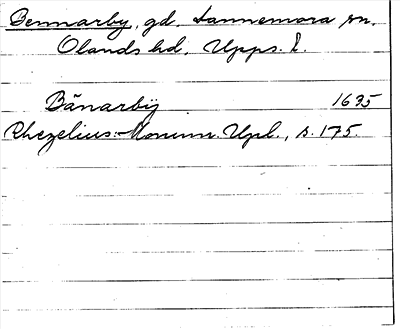 Bennarby, gd. Dannemora sn.
Olands hd, Upps. l.
Bänarbÿ 1635
Rhezelius: Monum. Upl., s. 175.